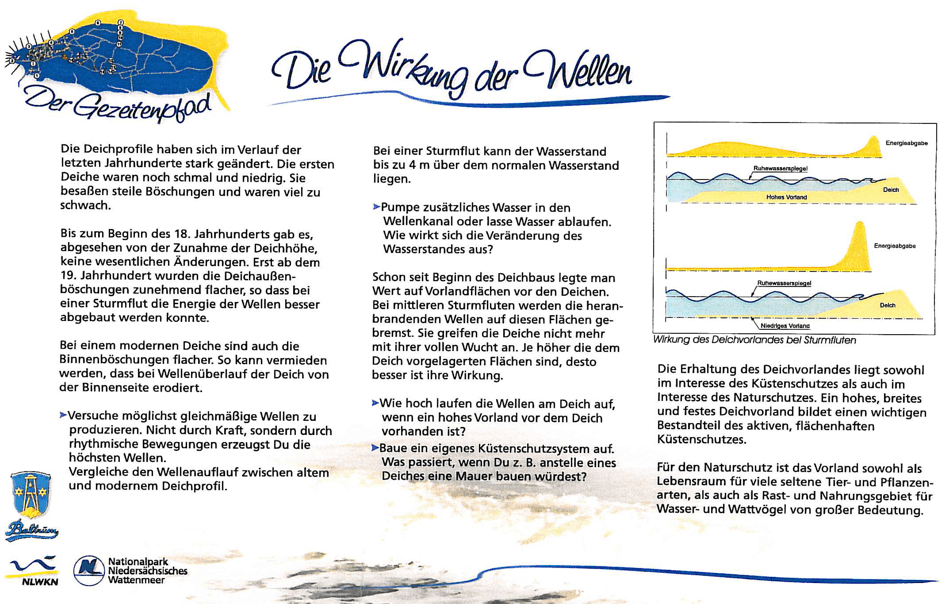 Der Gezeitenpfad
Die Wirkung der Wellen
Die Deichprofile haben sich im Verlauf der
letzten Jahrhunderte stark geändert. Die ersten
Deiche waren noch schmal und niedrig. Sie
besaßen steile Böschungen und waren viel zu
schwach.
Bis zum Beginn des 18. Jahrhunderts gab es,
abgesehen von der Zunahme der Deichhöhe,
keine wesentlichen Änderungen. Erst ab dem
19. Jahrhundert wurden die Deichaußen-
böschungen zunehmend flacher, so dass bei
einer Sturmflut die Energie der Wellen besser
abgebaut werden konnte.
Bei einem modernen Deiche sind auch die
Binnenböschungen flacher. So kann vermieden
werden, dass bei Wellenüberlauf der Deich von
der Binnenseite erodiert.
➤Versuche möglichst gleichmäßige Wellen zu
produzieren. Nicht durch Kraft, sondern durch
rhythmische Bewegungen erzeugst Du die
höchsten Wellen.
Vergleiche den Wellenauflauf zwischen altem
und modernem Deichprofil.
Bei einer Sturmflut kann der Wasserstand
bis zu 4 m über dem normalen Wasserstand
liegen.
➤Pumpe zusätzliches Wasser in den
Wellenkanal oder lasse Wasser ablaufen.
Wie wirkt sich die Veränderung des
Wasserstandes aus?
Schon seit Beginn des Deichbaus legte man
Wert auf Vorlandflächen vor den Deichen.
Bei mittleren Sturmfluten werden die heran-
brandenden Wellen auf diesen Flächen ge-
bremst. Sie greifen die Deiche nicht mehr
mit ihrer vollen Wucht an. Je höher die dem
Deich vorgelagerten Flächen sind, desto
besser ist ihre Wirkung.
➤Wie hoch laufen die Wellen am Deich auf,
wenn ein hohes Vorland vor dem Deich
vorhanden ist?
➤Baue ein eigenes Küstenschutzsystem auf.
Was passiert, wenn Du z. B. anstelle eines
Deiches eine Mauer bauen würdest?
Energieabgabe
Ruhewasserspiegel
Deich
Hohes Vorland
Energieabgabe
Ruhewasserspiegel
Deich
Niedriges Vorland
Wirkung des Deichvorlandes bei Sturmfluten
Die Erhaltung des Deichvorlandes liegt sowohl
im Interesse des Küstenschutzes als auch im
Interesse des Naturschutzes. Ein hohes, breites
und festes Deichvorland bildet einen wichtigen
Bestandteil des aktiven, flächenhaften
Küstenschutzes.
Für den Naturschutz ist das Vorland sowohl als
Lebensraum für viele seltene Tier- und Pflanzen-
arten, als auch als Rast- und Nahrungsgebiet für
Wasser- und Wattvögel von großer Bedeutung.
Baltrum
NLWKN
Nationalpark
Niedersächsisches
Wattenmeer